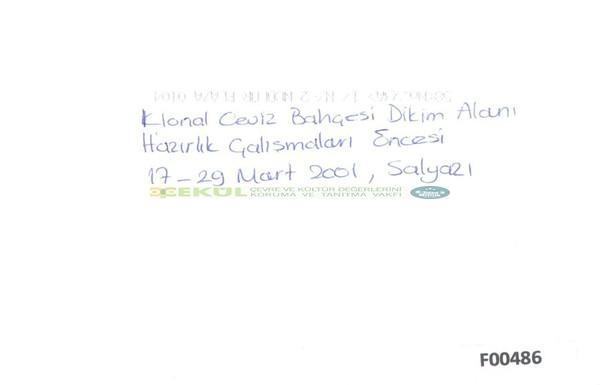 Klonal Ceviz Bahçesi Dikim Alanı
Hazırlık Çalışmaları Öncesi
17-29 Mart 2001, Salyazı
ÇEKÜL ÇEVRE VE KÜLTÜR DEĞERLERİNİ
KORUMA VE TANITMA VAKFI
F00486